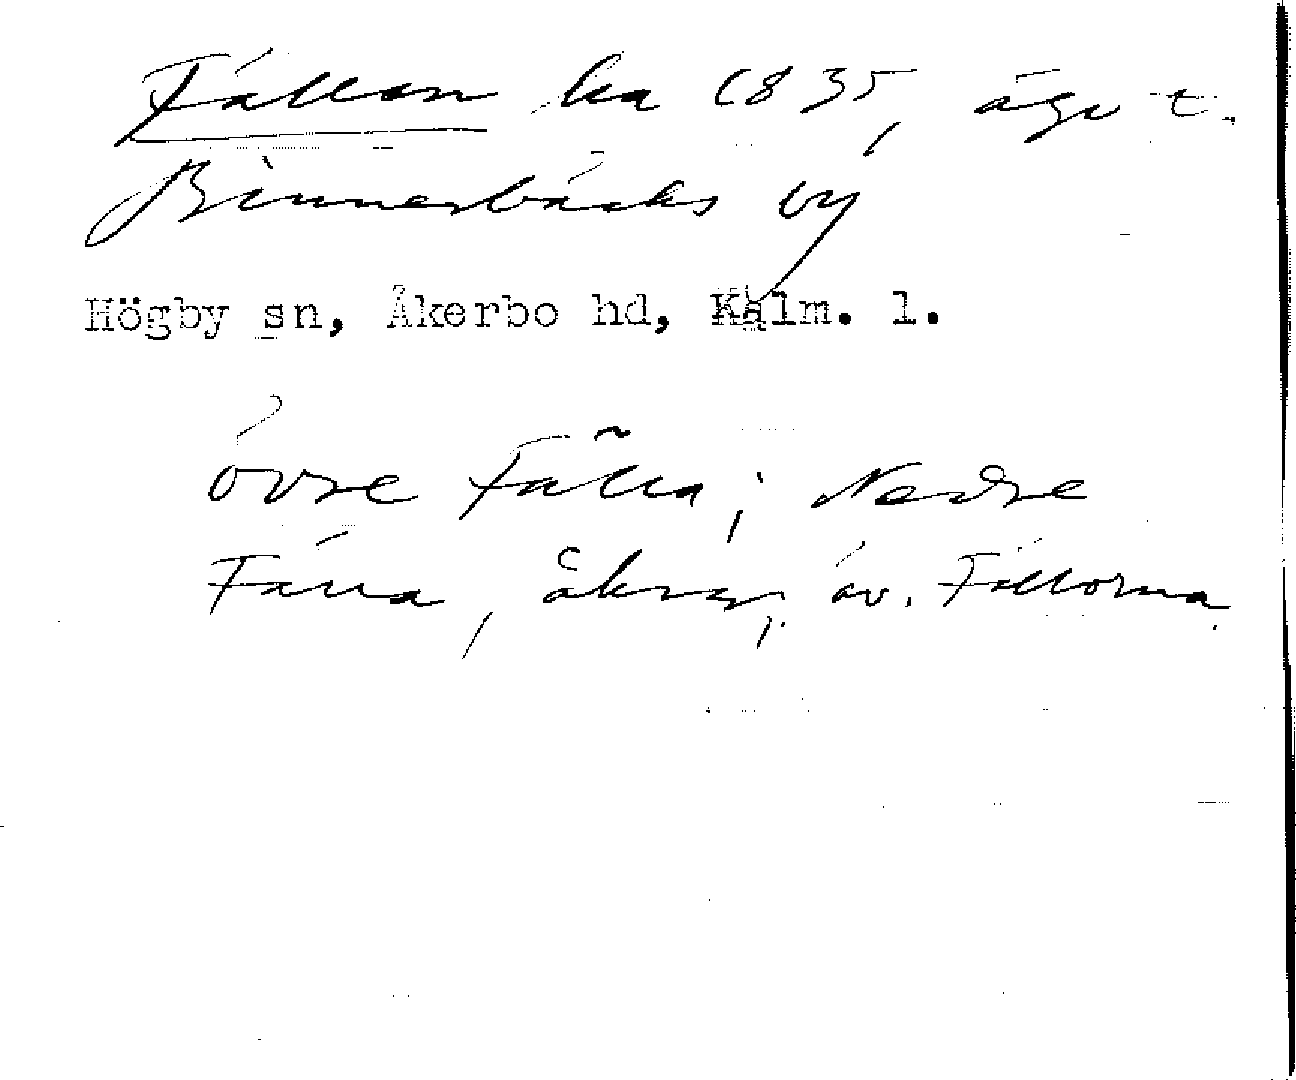 Fällan ha 1835, ägor t.
Binnerbäcks by
Högby sn, Åkerbo hd, Kalm. l.
Övre Fälla; Nedre
Fälla, åkrar; äv. Fällorna.